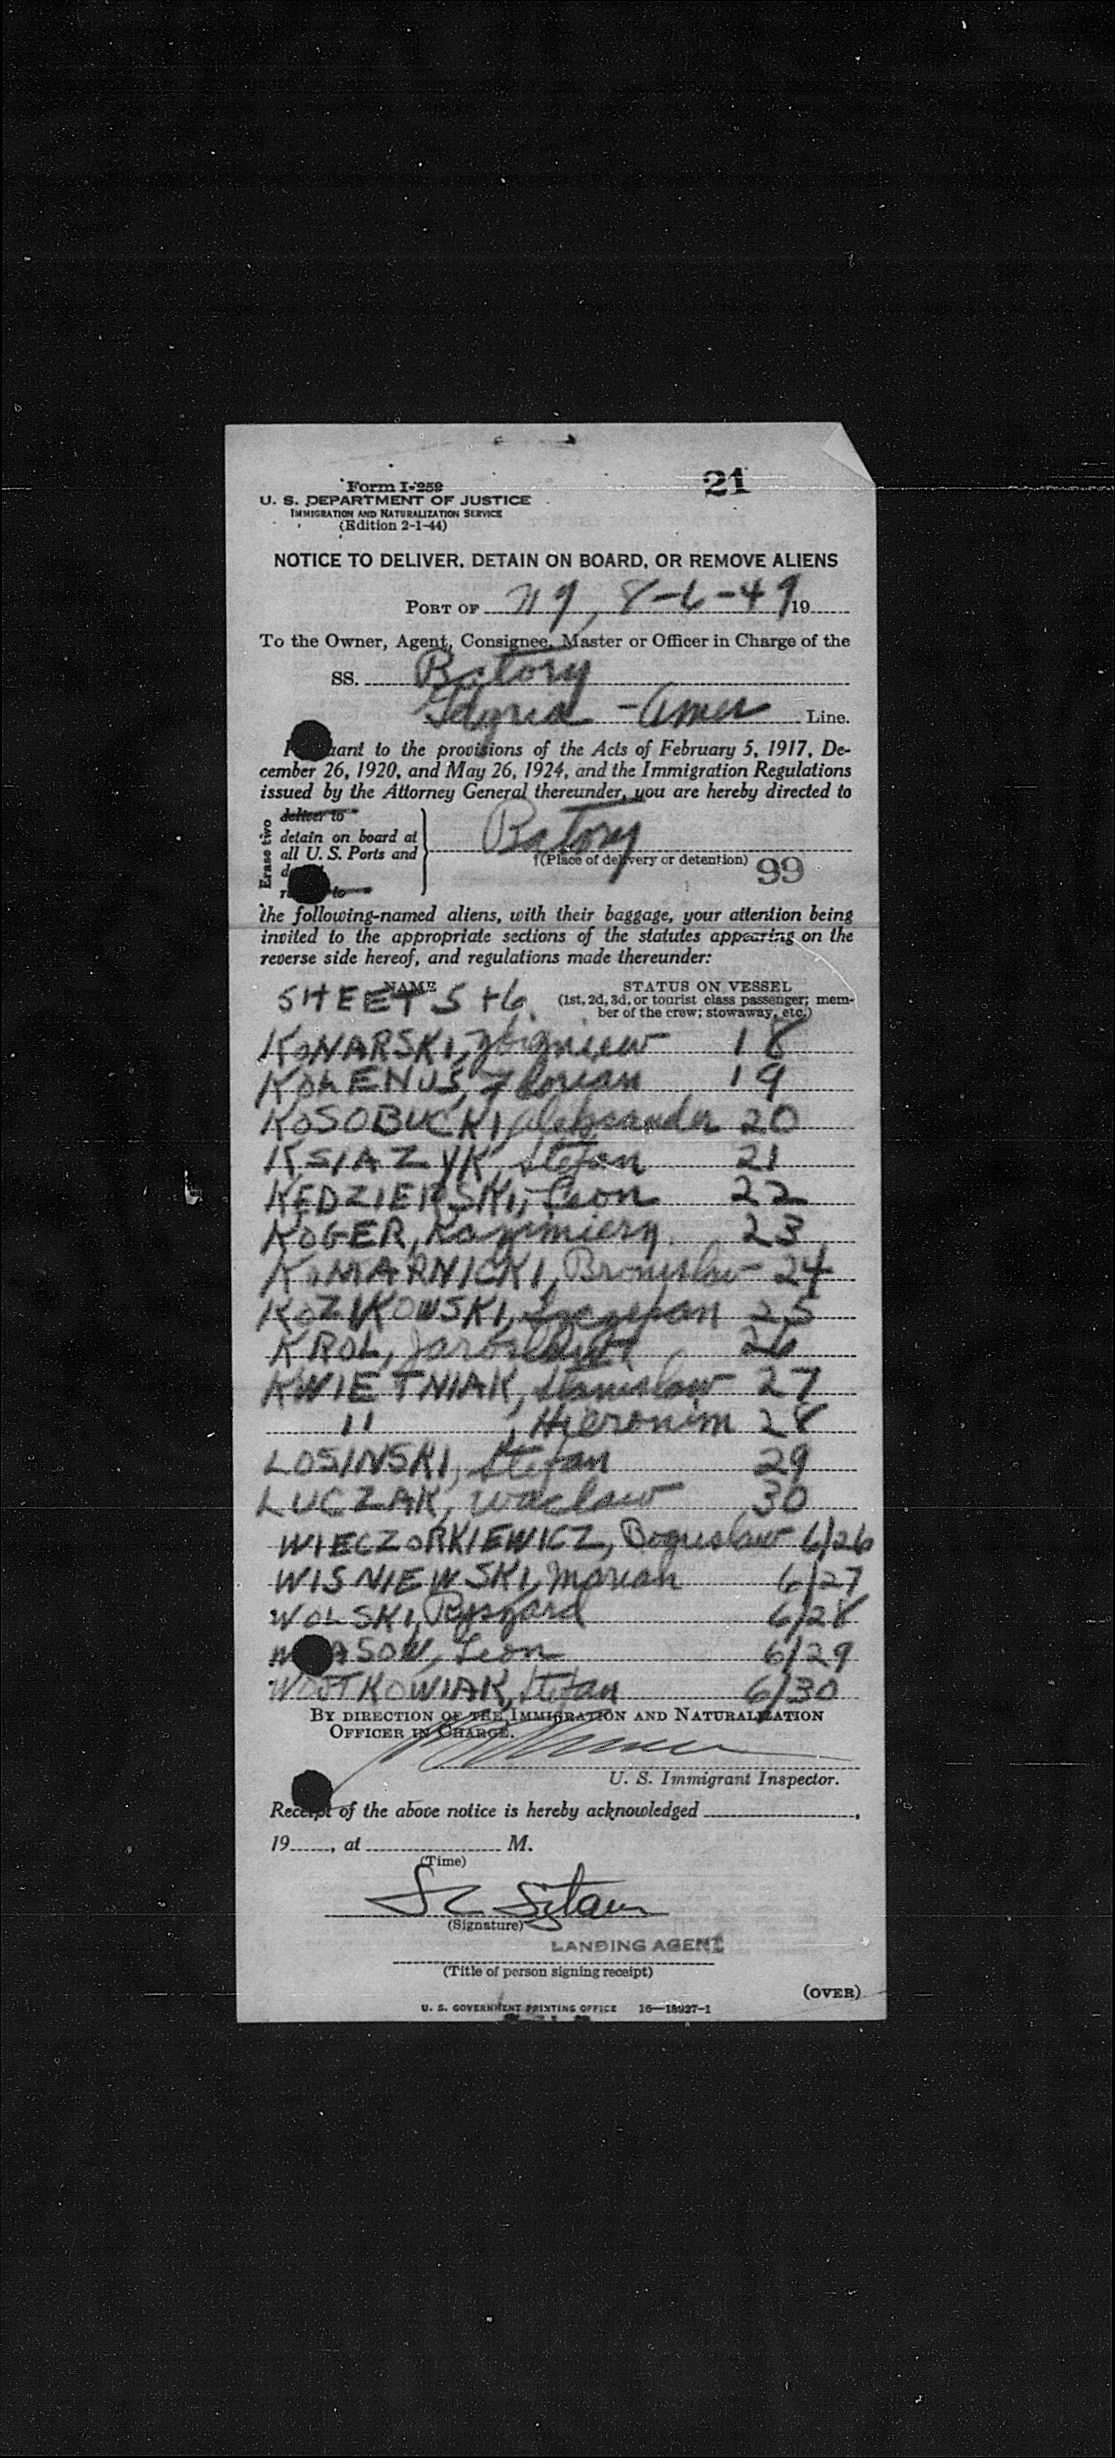 Form I-259
21
U. S. DEPARTMENT OF JUSTICE
IMMIGRATION AND NATURALIZATION SERVICE
(Edition 2-1-44)
NOTICE TO DELIVER, DETAIN ON BOARD, OR REMOVE ALIENS
PORT OF NY, 8-6-49 19
To the Owner, Agent, Consignee, Master or Officer in Charge of the
SS. Batory
Gdynia - Amer Line.
Pursuant to the provisions of the Acts of February 5, 1917, De-
cember 26, 1920, and May 26, 1924, and the Immigration Regulations
issued by the Attorney General thereunder, you are hereby directed to
Erase two
deliver to
detain on board at
all U. S. Ports and
to
Batory
†(Place of delivery or detention)
99
the following-named aliens, with their baggage, your attention being
invited to the appropriate sections of the statutes appearing on the
reverse side hereof, and regulations made thereunder:
NAME
STATUS ON VESSEL
(1st, 2d, 3d, or tourist class passenger; mem-
ber of the crew; stowaway, etc.)
SHEET 5 + 6.
KONARSKI, Zbigniew 18
KOLENUS, Florian 19
KOSOBUCKI, Aleksander 20
KSIAZYK, Stefan 21
KEDZIERSKI, Leon 22
KOGER, Kazimierz 23
KOMARNICKI, Bronislaw 24
KOZIKOWSKI, Szczepan 25
KROL, Jaroslaw 26
KWIETNIAK, Stanislaw 27
" , Hieronim 28
LOSINSKI, Stefan 29
LUCZAK, Waclaw 30
WIECZORKIEWICZ, Boguslaw 6/26
WISNIEWSKI, Marian 6/27
WOLSKI, Ryszard 6/28
Leon 6/29
WOJTKOWIAK, Stefan 6/30
BY DIRECTION OF THE IMMIGRATION AND NATURALIZATION
OFFICER IN CHARGE.
U. S. Immigrant Inspector.
Receipt of the above notice is hereby acknowledged ,
19 , at M.
(Time)
(Signature)
LANDING AGENT
(Title of person signing receipt)
(OVER)
U. S. GOVERNMENT PRINTING OFFICE 16—18927-1